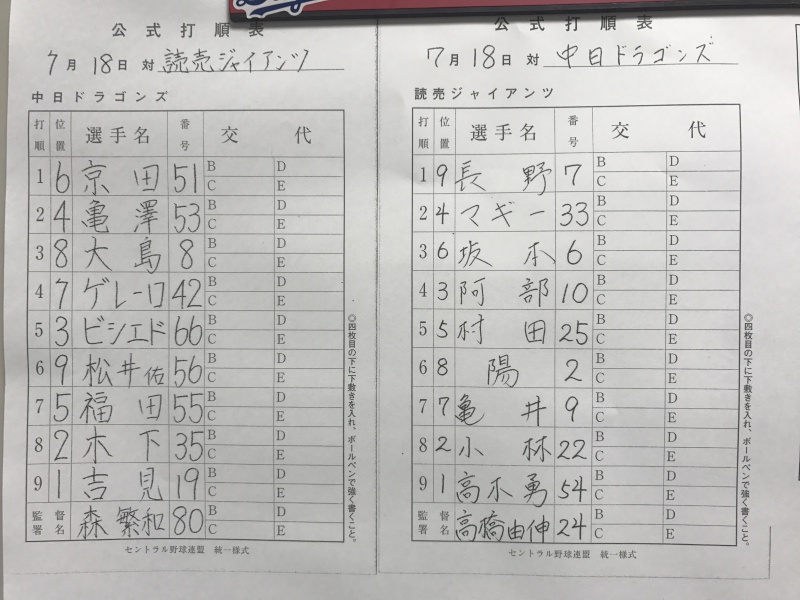 公式打順表
7月18日 対 読売ジャイアンツ
中日ドラゴンズ
打順 位置 選手名 番号 交代
1 6 京田 51 B D C E
2 4 亀澤 53 B D C E
3 8 大島 8 B D C E
4 7 ゲレーロ 42 B D C E
5 3 ビシエド 66 B D C E
6 9 松井佑 56 B D C E
7 5 福田 55 B D C E
8 2 木下 35 B D C E
9 1 吉見 19 B D C E
監督署名 森繁和 80 B D C E
セントラル野球連盟 統一様式
◎四枚目の下に下敷きを入れ、ボールペンで強く書くこと。
公式打順表
7月18日 対 中日ドラゴンズ
読売ジャイアンツ
打順 位置 選手名 番号 交代
1 9 長野 7 B D C E
2 4 マギー 33 B D C E
3 6 坂本 6 B D C E
4 3 阿部 10 B D C E
5 5 村田 25 B D C E
6 8 陽 2 B D C E
7 7 亀井 9 B D C E
8 2 小林 22 B D C E
9 1 高木勇 54 B D C E
監督署名 高橋由伸 24 B D C E
セントラル野球連盟 統一様式
◎四枚目の下に下敷きを入れ、ボールペンで強く書くこと。